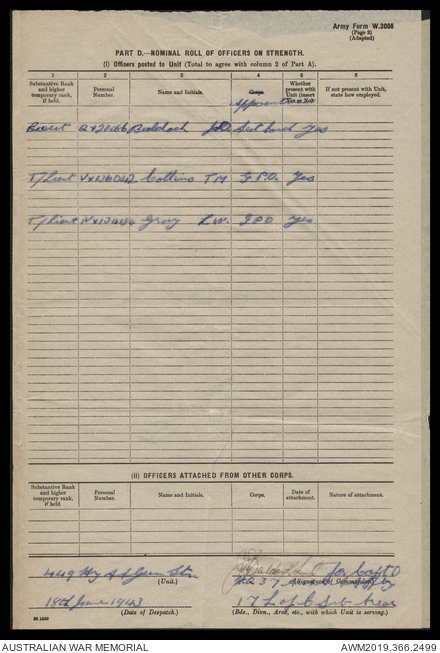 Army Form W.3008
(Page 2)
(Adapted)
PART D.—NOMINAL ROLL OF OFFICERS ON STRENGTH.
(i) Officers posted to Unit (Total to agree with column 2 of Part A).
1 2 3 4 5 6
Substantive Rank and higher temporary rank, if held. Personal Number. Name and Initials. Corps. Whether present with Unit (insert Yes or No) If not present with Unit, state how employed.
Lieut J.D. Yes
T/Lieut Collins T M G.P.O. Yes
T/Lieut Gray L.W. G P O Yes
(ii) OFFICERS ATTACHED FROM OTHER CORPS.
Substantive Rank and higher temporary rank, if held Personal Number. Name and Initials. Corps. Date of attachment. Nature of attachment.
449 Hy Gun Stn Lieut for Capt
(Unit.)
18th June 1943 17 L of C Sub Area
(Date of Despatch.) (Bde., Divn., Area, etc., with which Unit is serving.)
AUSTRALIAN WAR MEMORIAL AWM2019.366.2499